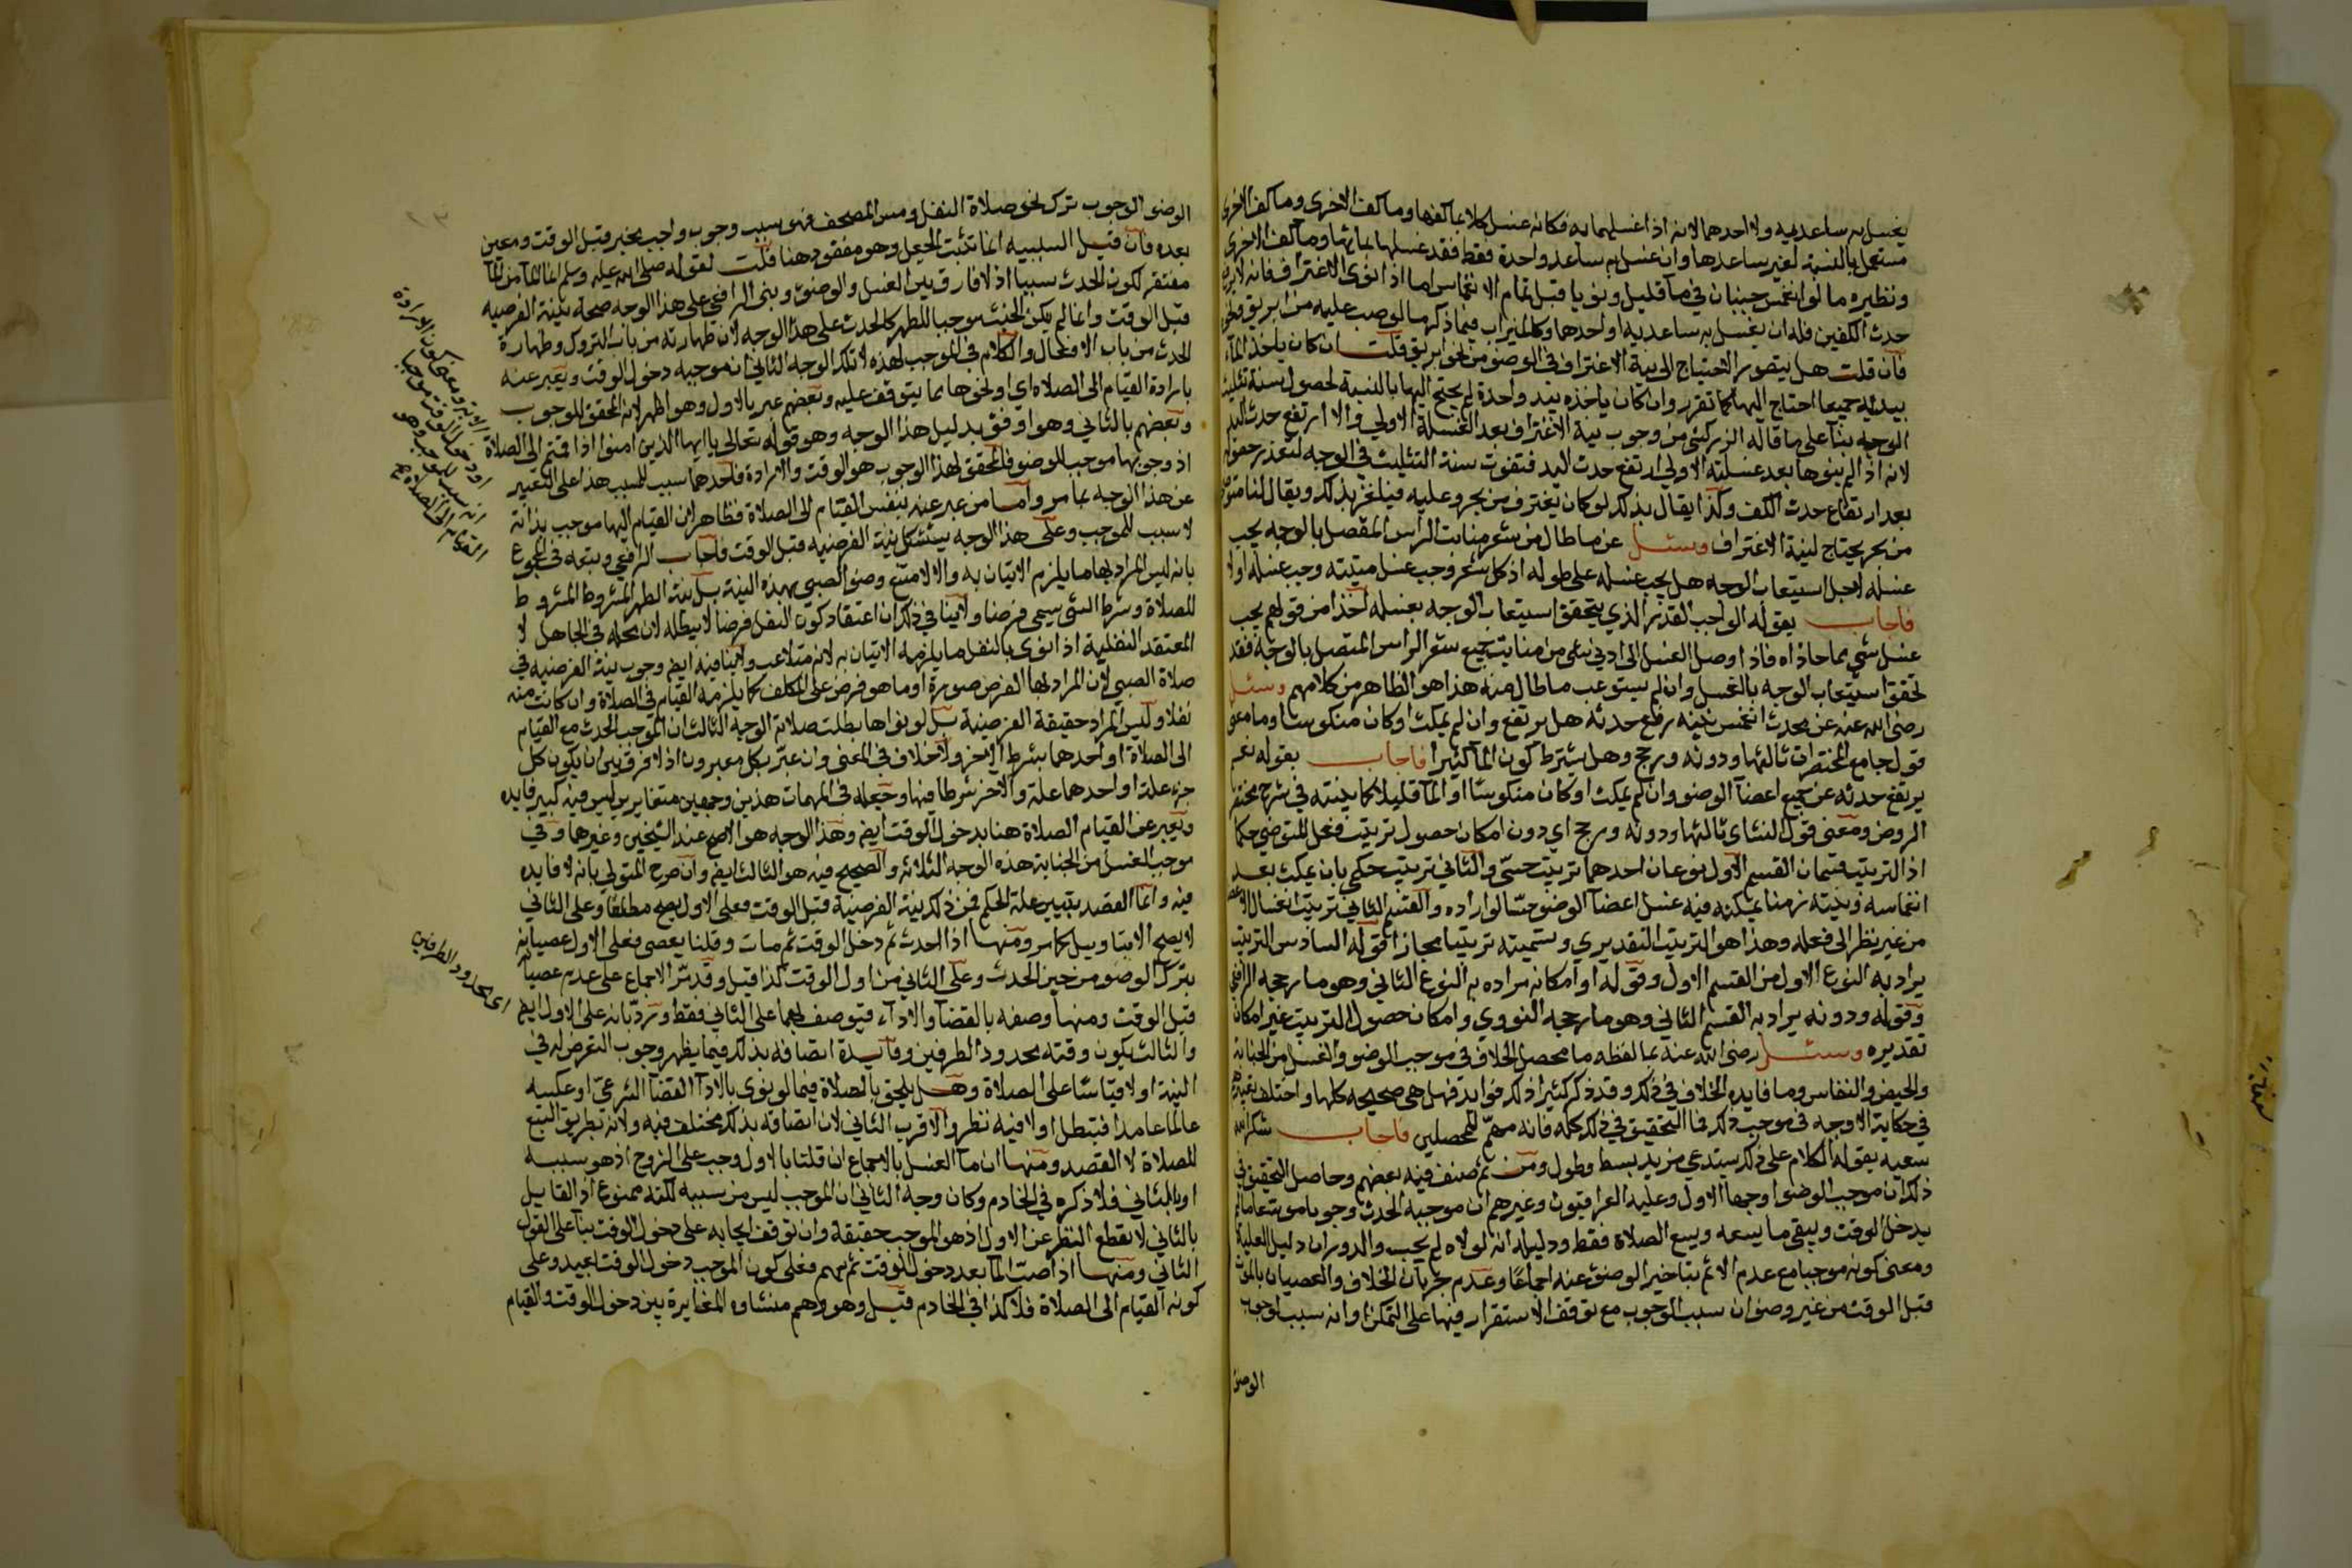 يغسل به ساعديه ولا احدهما لانه اذا غسلهما به فكانه غسل كلا بما كفها وما كف الاخرى وما كف الاخرى
مستعمل بالنسبة لغير ساعدها وان غسل به ساعد واحدة فقط فقد غسلها بمائها وماء كف الاخرى
ونظيره ما لو انغمس جنبان في ماء قليل ونويا قبل تمام الانغماس اما اذا نوى الاغتراف فانه لا يرفع
حدث الكفين فله ان يغسل به ساعديه او احدهما وكالميزاب فيما ذكر ما لو صب عليه من ابريق ونحوه
فان قلت هل يتصور الاحتياج الى نية الاغتراف في الوضوء من نحو ابريق قلت ان كان ياخذ الماء
بيديه جميعا احتاج اليها كما تقرر وان كان ياخذه بيد واحدة لم يحتج اليها بالنسبة لحصول سنة تثليث
الوجه بناء على ما قاله الزركشي من وجوب نية الاغتراف بعد الغسلة الاولى والا ارتفع حدث اليد
لانه اذا لم ينوها بعد غسلته الاولى ارتفع حدث اليد فتفوت سنة التثليث في الوجه لتعذر حصوله
بعد ارتفاع حدث الكف وكذا يقال بذلك لو كان يغترف من بحر وعليه فيلغز بذلك ويقال لنا متوضئ
من بحر يحتاج لنية الاغتراف وسئل عن ما طال من شعر منابت الراس المتصل بالوجه يجب
غسله لاجل استيعاب الوجه هل يجب غسله على طوله اذ كل شعر وجب غسل منبته وجب غسله او لا
فاجاب بقوله الواجب القدر الذي يتحقق استيعاب الوجه بغسله اخذا من قولهم يجب
غسل شيء مما حاذاه فاذا وصل الغسل الى ادنى شيء من منابت جميع شعر الراس المتصل بالوجه فقد
تحقق استيعاب الوجه بالغسل وان لم يستوعب ما طال منه هذا هو الظاهر من كلامهم وسئل
رضي الله عنه عن محدث انغمس بنية رفع حدثه هل يرتفع وان لم يمكث او كان منكوسا وما معنى
قول جامع المختصرات ثالثها ودونه ورجح وهل يشترط كون الماء كثيرا فاجاب بقوله نعم
يرتفع حدثه عن جميع اعضاء الوضوء وان لم يمكث او كان منكوسا او الماء قليلا كما بينته في شرح مختصر
الروض ومعنى قول النشاي ثالثها ودونه ورجح اي دون امكان حصول ترتيب فعل المتوضي حكما
اذ الترتيب قسمان القسم الاول نوعان احدهما ترتيب حسي والثاني ترتيب حكمي بان يمكث بعد
انغماسه ونيته زمنا يمكنه فيه غسل اعضاء الوضوء حسا لو اراده والقسم الثاني ترتيب انغسال الاعضا
من غير نظر الى فعله وهذا هو الترتيب التقديري وتسميته ترتيبا مجازا فقوله السادس الترتيب
يراد به النوع الاول من القسم الاول وقوله او امكانه مراده به النوع الثاني وهو ما رجحه الرافعي
وقوله ودونه يراد به القسم الثاني وهو ما رجحه النووي وامكان حصول الترتيب غير امكان
تقديره وسئل رضي الله عنه بما لفظه ما محصل الخلاف في موجب الوضوء والغسل من الجنابة
والحيض والنفاس وما فايدة الخلاف في ذلك وقد ذكر كثير اذ لك فوايد فهل هي صحيحه كلها واختلف تعبيرهم
في حكاية الاوجه في موجب ذلك فما التحقيق في ذلك كله فانه مهم للمحصلين فاجاب شكر الله
سعيه بقوله الكلام على ذلك يستدعي مزيد بسط وطول ومن ثم صنف فيه بعضهم وحاصل التحقيق في
ذلك ان موجب الوضوء اوجها الاول وعليه العراقيون وغيرهم ان موجبه الحدث وجوبا موسعا ما لم
يدخل الوقت ويبقى ما يسعه ويسع الصلاة فقط ودليله انه لولاه لم يجب والدوران دليل العلية
ومعنى كونه موجبا مع عدم الاثم بتاخير الوضوء عنه اجماعا وعدم جريان الخلاف والعصيان بالموت
قبل الوقت من غير وضوء ان سبب الوجوب مع توقف الاستقرار فيها على التمكن او انه سبب لوجوب
الوضوء
الوضوء الوجوب ترك نحو صلاة النفل ومس المصحف فهو سبب وجوب واجب مخير قبل الوقت ومعين
بعده فان قيل السببيه انما تثبت بالجعل وهو مفقود هنا قلت لقوله صلى الله عليه وسلم انما الماء من الماء
مقتض لكون الحدث سببا اذ لا فارق بين الغسل والوضوء وبنى الرافعي على هذا الوجه صحة بنية الفرضيه
قبل الوقت وانما لم يكن الخبث موجبا للطهر كالحدث على هذا الوجه لان طهارته من باب التروك وطهارة
الحدث من باب الافعال والكلام في الموجب لهذه لا تلك الوجه الثاني ان موجبه دخول الوقت ويعبر عنه
بارادة القيام الى الصلاه اي او نحوها مما يتوقف عليه وبعضهم عبر بالاول وهو اظهر لانه المحقق للوجوب
وبعضهم بالثاني وهو اوفق بدليل هذا الوجه وهو قوله تعالى يا ايها الذين امنوا اذا قمتم الى الصلاة
اذ وجوبها موجب للوضوء فالمحقق لهذا الوجوب هو الوقت والارادة فاحدهما سبب للسبب هذا على التعبير
عن هذا الوجه بما مر واما من عبر عنه بنفس القيام الى الصلاة فظاهر ان القيام اليها موجب بذاته
لا سبب للموجب وعلى هذا الوجه يستشكل نية الفرضيه قبل الوقت فاجاب الرافعي وتبعه في المجموع
بانه ليس المراد بها ما يلزم الاتيان به والا لامتنع وضوء الصبي بهذه النية بل نية الطهر المشروط المشروط
للصلاة وشرط الشيء يسمى فرضا ولا ينافي ذلك ان اعتقاد كون النفل فرضا لا يبطله لان محله في الجاهل لا
المعتقد النفلية اذا نوى بالنفل ما يلزمه الاتيان به لانه متلاعب ولا ينافيه ايض وجوب نية الفرضيه في
صلاة الصبي لان المراد بها الفرض صورة او ما هو فرض على المكلف كما يلزمه القيام في الصلاة وان كانت منه
نفلا وليس المراد حقيقة الفرضية بل لو نواها بطلت صلاته الوجه الثالث ان الموجب الحدث مع القيام
الى الصلاة او احدهما بشرط الاخر ولا خلاف في المعنى وان عبر بكل معبرون اذ لا فرق بين ان يكون كل
جزء علة او احدهما علة والاخر شرطا فيها وجعله في المهمات هذين وجهين متغايرين ليس فيه كبير فايده
ويعبر عن القيام الصلاة هنا بدخول الوقت ايض وهذا الوجه هو الاصح عند الشيخين وغيرهما وفي
موجب الغسل من الجنابة هذه الوجه الثلاثه والصحيح فيه هو الثالث ايض وان صرح المتولي بانه لا فايده
فيه وانما القصد تبيين علة الحكم فمن ذلك نية الفرضية قبل الوقت فعلى الاول يصح مطلقا وعلى الثاني
لا يصح الا بتاويل كما مر ومنها اذا احدث ثم دخل الوقت ثم مات وقلنا يعصى فعلى الاول عصيانه
بترك الوضوء من حين الحدث وعلى الثاني من اول الوقت كذا قيل وقد مر الاجماع على عدم عصيانه
قبل الوقت ومنها وصفه بالقضاء والاداء فيوصف بهما على الثاني فقط ويرد بانه على الاول ايض
والثالث يكون وقته محدود الطرفين وفائدة اتصافه بذلك فيما يظهر وجوب التعرض له في
النية او لا قياسا على الصلاة وهل يلحق بالصلاة فيما لو نوى بالاداء القضاء الشرعي او عكسه
عالما عامدا فتبطل او لا فيه نظر والاقرب الثاني لان اتصافه بذلك مختلف فيه ولانه بطريق التبع
للصلاة لا القصد ومنها ان ماء الغسل بالاجماع ان قلنا بالاول وجب على الزوج اذ هو سببه
او بالثاني فلا ذكره في الخادم وكان وجه الثاني ان الموجب ليس من سببه لكنه ممنوع اذ القايل
بالثاني لا يقطع النظر عن الاول اذ هو الموجب حقيقة وان توقف ايجابه على دخول الوقت بناء على القول
الثاني ومنها اذا صب الماء بعد دخول الوقت ثم تيمم فعلى كون الموجب دخول الوقت يعيد وعلى
كونه القيام الى الصلاة فلا كذا في الخادم قيل وهو وهم منشاه المغايرة بين دخول الوقت والقيام
اي محدود الطرفين